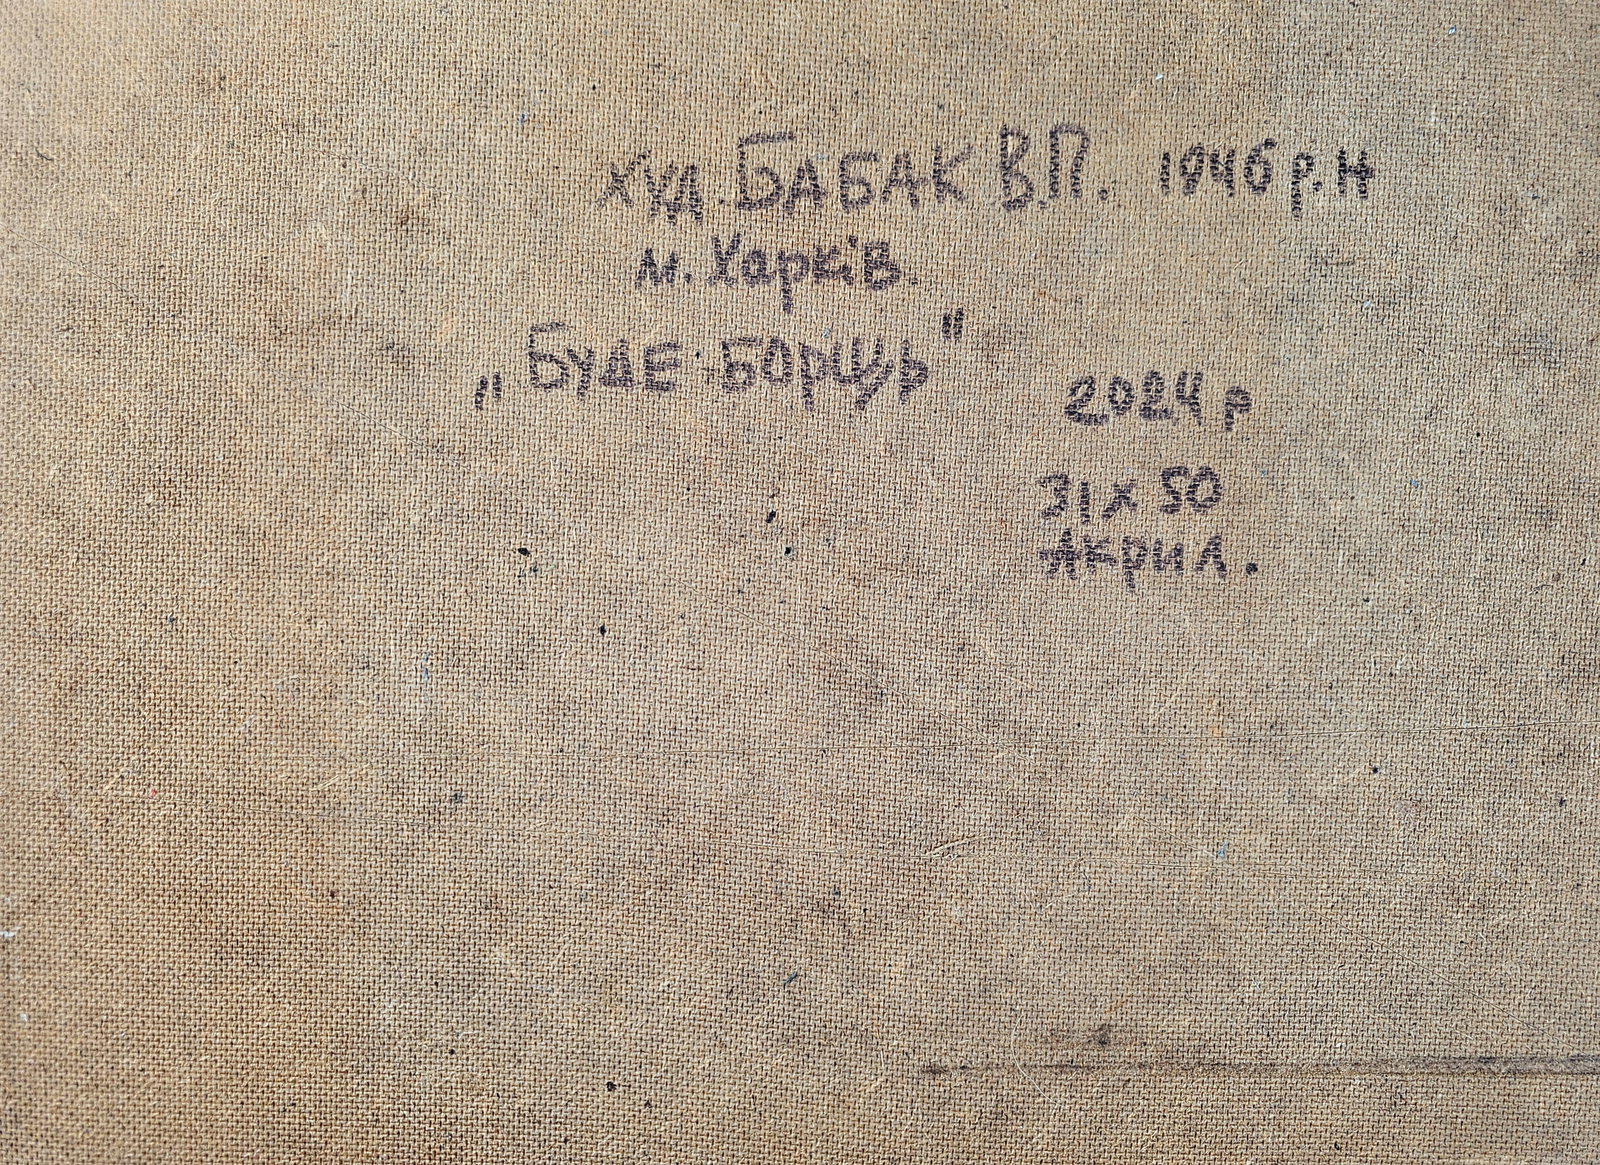 худ. БАБАК В.П. 1946 р.н
м. Харків.
„БУДЕ БОРЩЬ"
2024 р
31 х 50
Акрил.